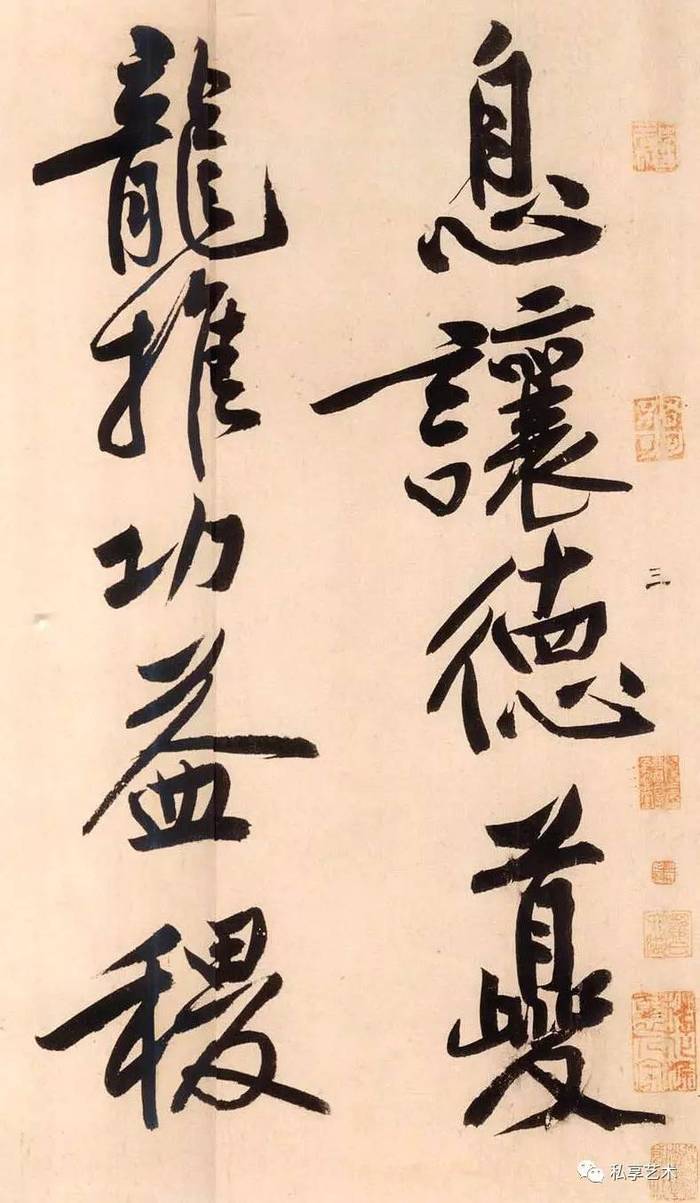 息讓德夔
龍推功益稷
三
私享艺术